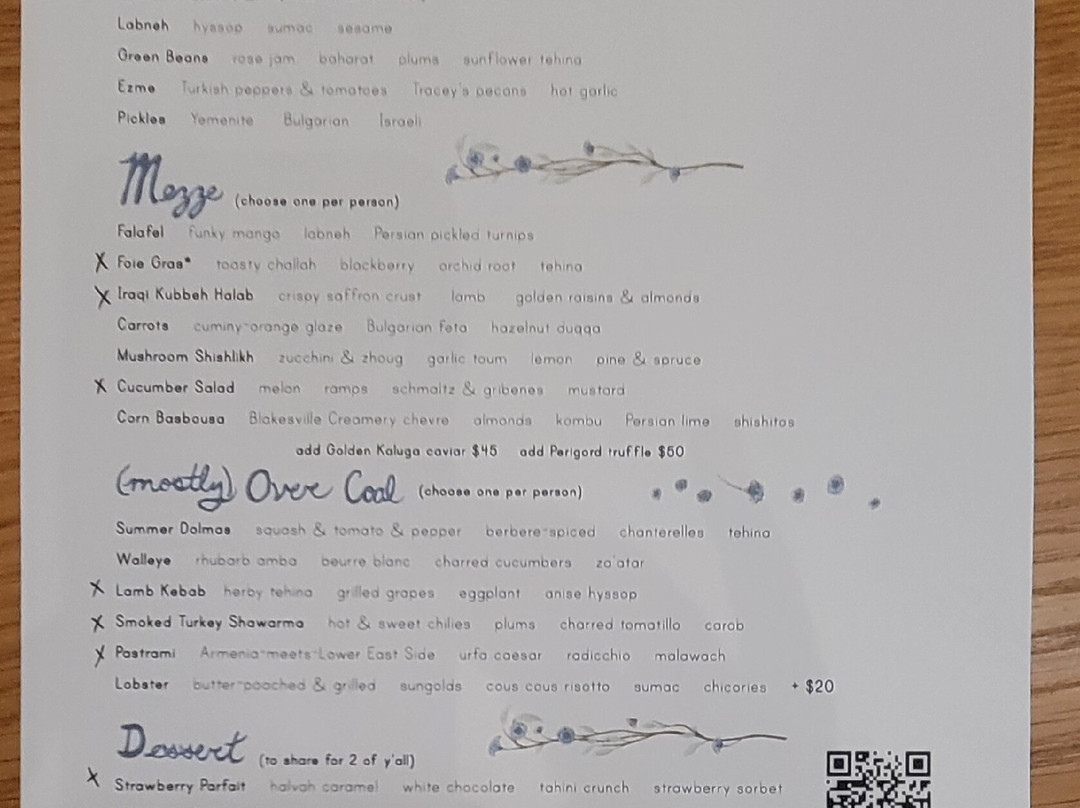 Labneh hyssop sumac sesame
Green Beans rose jam baharat plums sunflower tehina
Ezme Turkish peppers & tomatoes Tracey's pecans hot garlic
Pickles Yemenite Bulgarian Israeli
Mezze (choose one per person)
Falafel funky mango labneh Persian pickled turnips
X Foie Gras* toasty challah blackberry orchid root tehina
X Iraqi Kubbeh Halab crispy saffron crust lamb golden raisins & almonds
Carrots cuminy-orange glaze Bulgarian feta hazelnut duqqa
Mushroom Shishlikh zucchini & zhoug garlic toum lemon pine & spruce
X Cucumber Salad melon ramps schmaltz & gribenes mustard
Corn Basbousa Blakesville Creamery chevre almonds kombu Persian lime shishitos
add Golden Kaluga caviar $45 add Perigord truffle $50
(mostly) Over Coal (choose one per person)
Summer Dolmas squash & tomato & pepper berbere-spiced chanterelles tehina
Walleye rhubarb amba beurre blanc charred cucumbers za'atar
X Lamb Kebab herby tehina grilled grapes eggplant anise hyssop
X Smoked Turkey Shawarma hot & sweet chilies plums charred tomatillo carob
X Pastrami Armenia-meets-Lower East Side urfa caesar radicchio malawach
Lobster butter-poached & grilled sungolds cous cous risotto sumac chicories + $20
Dessert (to share for 2 of y'all)
X Strawberry Parfait halvah caramel white chocolate tahini crunch strawberry sorbet